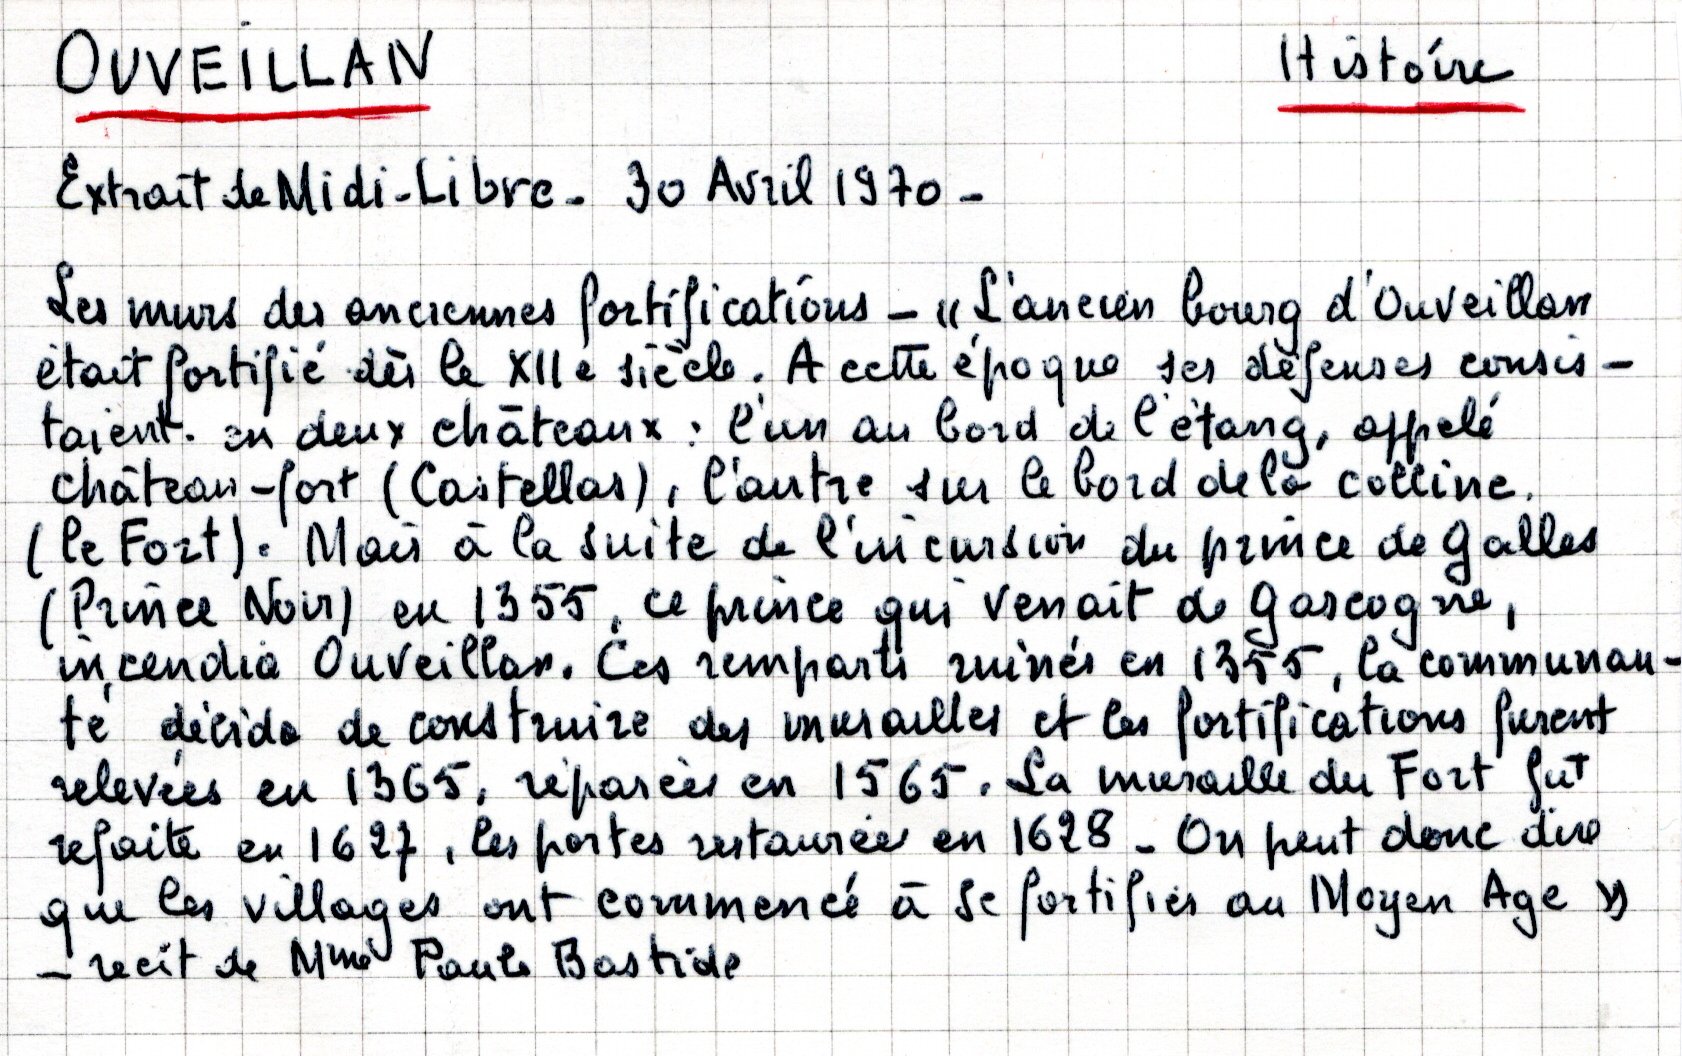 OUVEILLAN Histoire
Extrait de Midi-Libre - 30 Avril 1970 -
Les murs des anciennes fortifications - « L'ancien bourg d'Ouveillan
était fortifié dès le XIIe siècle. A cette époque ses défenses consis-
taient en deux châteaux : l'un au bord de l'étang, appelé
château-fort (Castellas), l'autre sur le bord de la colline.
(le Fort). Mais à la suite de l'incursion du prince de Galles
(Prince Noir) en 1355, ce prince qui venait de Gascogne,
incendia Ouveillan. Ces remparts ruinés en 1355, la communau-
té décida de construire des murailles et les fortifications furent
relevées en 1365, réparées en 1565. La muraille du Fort fut
refaite en 1627, les portes restaurées en 1628 - On peut donc dire
que les villages ont commencé à se fortifier au Moyen Age »
- recit de Mme Paule Bastide